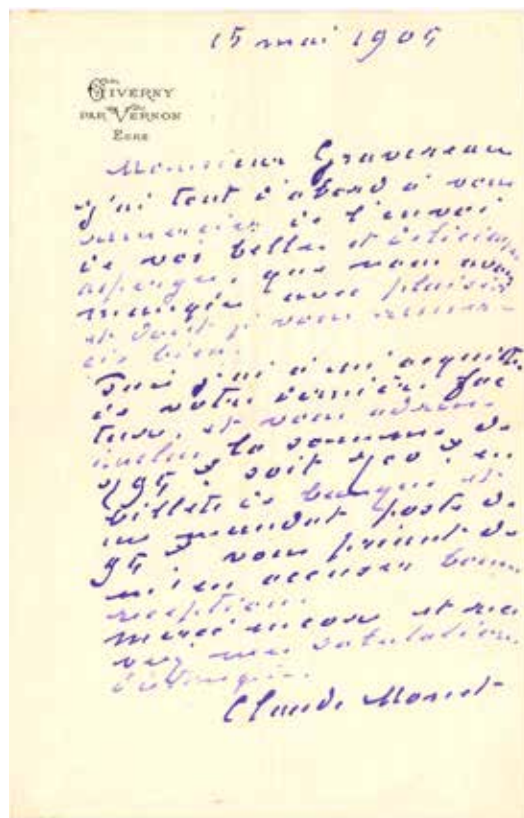 15 mai 1905
GIVERNY
PAR VERNON
EURE
Monsieur Gravereau
j'ai tout d'abord à vous
remercier de l'envoi
de vos belles et délicieuses
asperges, que nous avons
mangées avec plaisir
et dont je vous remer-
cie bien.
Puis j'ai à m'acquitter
de votre dernière fac
ture, et vous adresse
la somme de
soit en
billets de banque et
un mandat poste de
vous priant de
m'en accuser bonne
réception.
merci encore et rece
vez mes salutations
Claude Monet